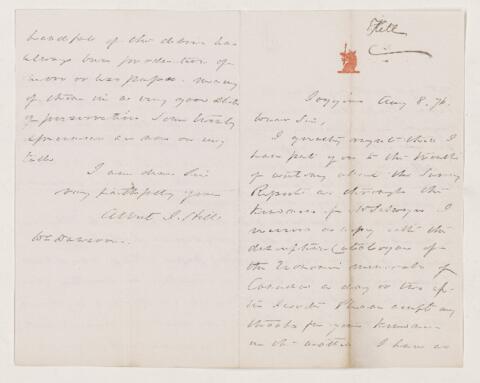 Hill
Joggins Aug 8. 76.
Dear Sir,
I greatly regret that I
have put you to the trouble
of writing about the Survey
Report as through the
kindness of Mr Selwyn I
received a copy with the
descriptive Catalogue of
the Economic minerals of
Canada a day or two af-
ter I wrote. Please accept my
thanks for your kindness
in the matter. I have a
handful of the debris has
always been productive of
one or
many
of them in a very good state
of preservation. Some twenty
specimens are now on my
table
I am dear Sir
very faithfully yours
Albert J. Hill.
Dawson.